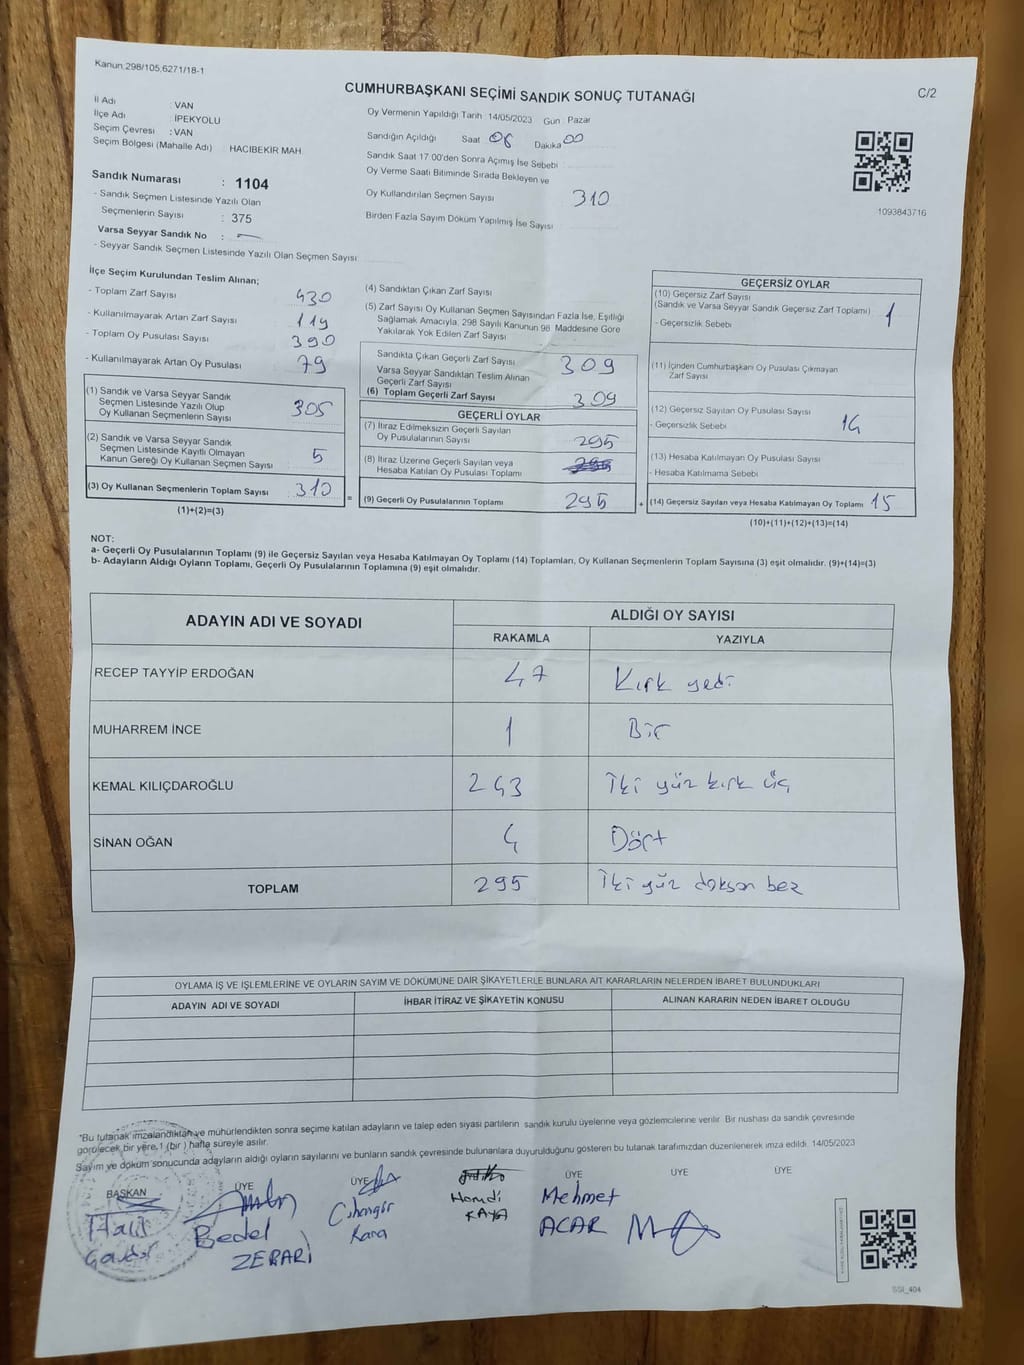 Kanun:298/105,6271/18-1
CUMHURBAŞKANI SEÇİMİ SANDIK SONUÇ TUTANAĞI
C/2
İl Adı : VAN
İlçe Adı : İPEKYOLU
Seçim Çevresi : VAN
Seçim Bölgesi (Mahalle Adı) HACIBEKİR MAH.
Sandık Numarası : 1104
- Sandık Seçmen Listesinde Yazılı Olan
Seçmenlerin Sayısı : 375
Varsa Seyyar Sandık No : -
- Seyyar Sandık Seçmen Listesinde Yazılı Olan Seçmen Sayısı:
Oy Vermenin Yapıldığı Tarih 14/05/2023 Gün : Pazar
Sandığın Açıldığı Saat 08 Dakika 00
Sandık Saat 17:00'den Sonra Açımış İse Sebebi
Oy Verme Saati Bitiminde Sırada Bekleyen ve
Oy Kullandırılan Seçmen Sayısı 310
Birden Fazla Sayım Döküm Yapılmış İse Sayısı
1093843716
İlçe Seçim Kurulundan Teslim Alınan;
- Toplam Zarf Sayısı 430
- Kullanılmayarak Artan Zarf Sayısı 119
- Toplam Oy Pusulası Sayısı 390
- Kullanılmayarak Artan Oy Pusulası 79
(1) Sandık ve Varsa Seyyar Sandık
Seçmen Listesinde Yazılı Olup
Oy Kullanan Seçmenlerin Sayısı 305
(2) Sandık ve Varsa Seyyar Sandık
Seçmen Listesinde Kayıtlı Olmayan
Kanun Gereği Oy Kullanan Seçmen Sayısı 5
(3) Oy Kullanan Seçmenlerin Toplam Sayısı 310
(1)+(2)=(3)
(4) Sandıktan Çıkan Zarf Sayısı
(5) Zarf Sayısı Oy Kullanan Seçmen Sayısından Fazla İse, Eşitliği
Sağlamak Amacıyla, 298 Sayılı Kanunun 98. Maddesine Göre
Yakılarak Yok Edilen Zarf Sayısı
Sandıkta Çıkan Geçerli Zarf Sayısı 309
Varsa Seyyar Sandıktan Teslim Alınan
Geçerli Zarf Sayısı
(6) Toplam Geçerli Zarf Sayısı 309
GEÇERLİ OYLAR
(7) İtiraz Edilmeksizin Geçerli Sayılan
Oy Pusulalarının Sayısı 295
(8) İtiraz Üzerine Geçerli Sayılan veya
Hesaba Katılan Oy Pusulası Toplamı
= (9) Geçerli Oy Pusulalarının Toplamı 295
GEÇERSİZ OYLAR
(10) Geçersiz Zarf Sayısı
(Sandık ve Varsa Seyyar Sandık Geçersiz Zarf Toplamı) 1
- Geçersizlik Sebebi
(11) İçinden Cumhurbaşkanı Oy Pusulası Çıkmayan
Zarf Sayısı
(12) Geçersiz Sayılan Oy Pusulası Sayısı 14
- Geçersizlik Sebebi
(13) Hesaba Katılmayan Oy Pusulası Sayısı
- Hesaba Katılmama Sebebi
+ (14) Geçersiz Sayılan veya Hesaba Katılmayan Oy Toplamı 15
(10)+(11)+(12)+(13)=(14)
NOT:
a- Geçerli Oy Pusulalarının Toplamı (9) ile Geçersiz Sayılan veya Hesaba Katılmayan Oy Toplamı (14) Toplamları, Oy Kullanan Seçmenlerin Toplam Sayısına (3) eşit olmalıdır. (9)+(14)=(3)
b- Adayların Aldığı Oyların Toplamı, Geçerli Oy Pusulalarının Toplamına (9) eşit olmalıdır.
ADAYIN ADI VE SOYADI
ALDIĞI OY SAYISI
RAKAMLA YAZIYLA
RECEP TAYYİP ERDOĞAN 47 Kırk yedi
MUHARREM İNCE 1 Bir
KEMAL KILIÇDAROĞLU 243 İki yüz kırk üç
SİNAN OĞAN 4 Dört
TOPLAM 295 İki yüz doksan beş
OYLAMA İŞ VE İŞLEMLERİNE VE OYLARIN SAYIM VE DÖKÜMÜNE DAİR ŞİKAYETLERLE BUNLARA AİT KARARLARIN NELERDEN İBARET BULUNDUKLARI
ADAYIN ADI VE SOYADI İHBAR İTİRAZ VE ŞİKAYETİN KONUSU ALINAN KARARIN NEDEN İBARET OLDUĞU
"Bu tutanak imzalandıktan ve mühürlendikten sonra seçime katılan adayların ve talep eden siyasi partilerin sandık kurulu üyelerine veya gözlemcilerine verilir. Bir nüshası da sandık çevresinde
görülecek bir yere,1 (bir ) hafta süreyle asılır.
Sayım ve döküm sonucunda adayların aldığı oyların sayılarını ve bunların sandık çevresinde bulunanlara duyurulduğunu gösteren bu tutanak tarafımızdan düzenlenerek imza edildi. 14/05/2023
BAŞKAN ÜYE ÜYE ÜYE ÜYE ÜYE
Halis
Bedel
ZERARİ
Cihangir
Kara
Hamdi
KAYA
Mehmet
ACAR
SSI_404